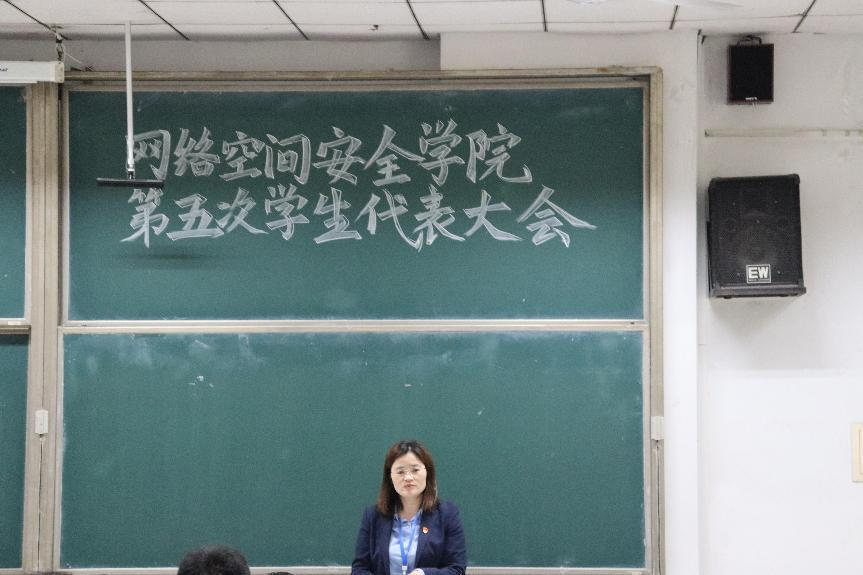 网络空间安全学院
第五次学生代表大会
EW